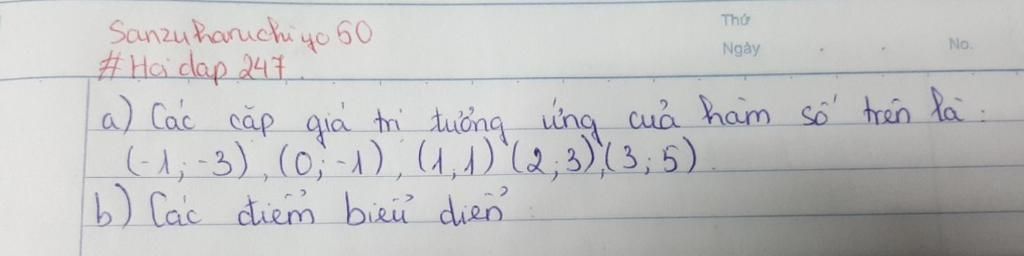 Sanzuharuchiyo50
#Hoidap247.
Thứ
Ngày
No.
a) Các cặp giá trị tương ứng cuả hàm số trên là:
(-1; -3), (0; -1), (1, 1) (2; 3), (3; 5).
b) Các điểm biểu diễn